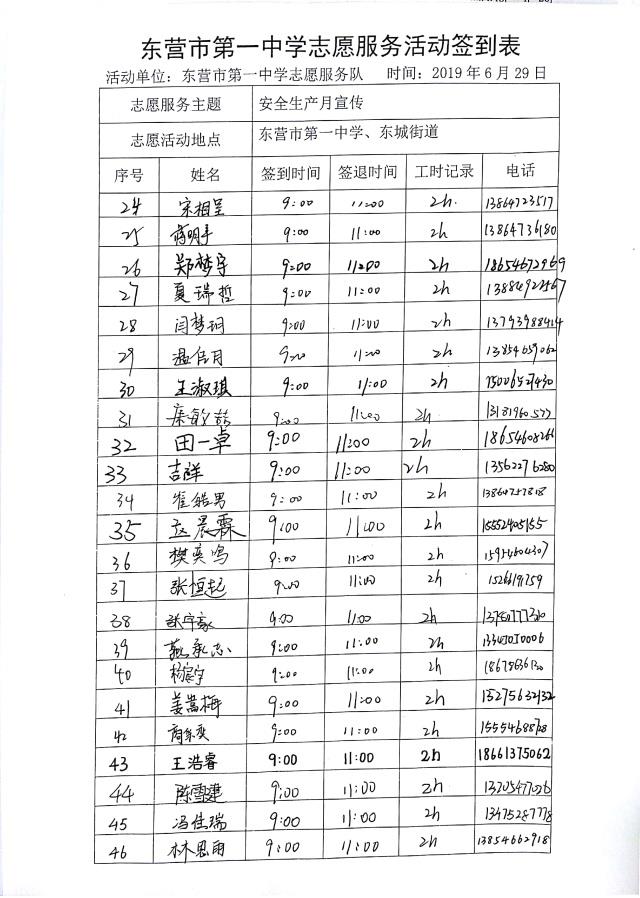 东营市第一中学志愿服务活动签到表
活动单位：东营市第一中学志愿服务队 时间：2019年6月29日
志愿服务主题 安全生产月宣传
志愿活动地点 东营市第一中学、东城街道
序号 姓名 签到时间 签退时间 工时记录 电话
24 宋相呈 9:00 11:00 2h. 13864723517
25 9:00 11:00 2h 13864736180
26 郑梦宇 9:00 11:00 2h 18654672969
27 夏瑞哲 9:00 11:00 2h
28 闫梦玥 9:00 11:00 2h 13793988414
29 9:00 11:00 2h 13854659062
30 王淑琪 9:00 11:00 2h 15006527430
31 9:00 11:00 2h 13181960577
32 田一卓 9:00 11:00 2h 18654608266
33 吉祥 9:00 11:00 2h 13562276280
34 崔皓男 9:00 11:00 2h
35 赵晨霖 9:00 11:00 2h 15552405155
36 樊奕鸣 9:00 11:00 2h 15954604307
37 张恒起 9:00 11:00 2h
38 张宇豪 9:00 11:00 2h
39 燕承志 9:00 11:00 2h
40 杨宸宇 9:00 11:00 2h
41 姜嵩梅 9:00 11:00 2h 15275632132
42 商东奕 9:00 11:00 2h 15554688728
43 王浩睿 9:00 11:00 2h 18661375062
44 陈雪建 9:00 11:00 2h 13305477026
45 冯佳瑞 9:00 11:00 2h 13475287778
46 林思雨 9:00 11:00 2h 13854662918